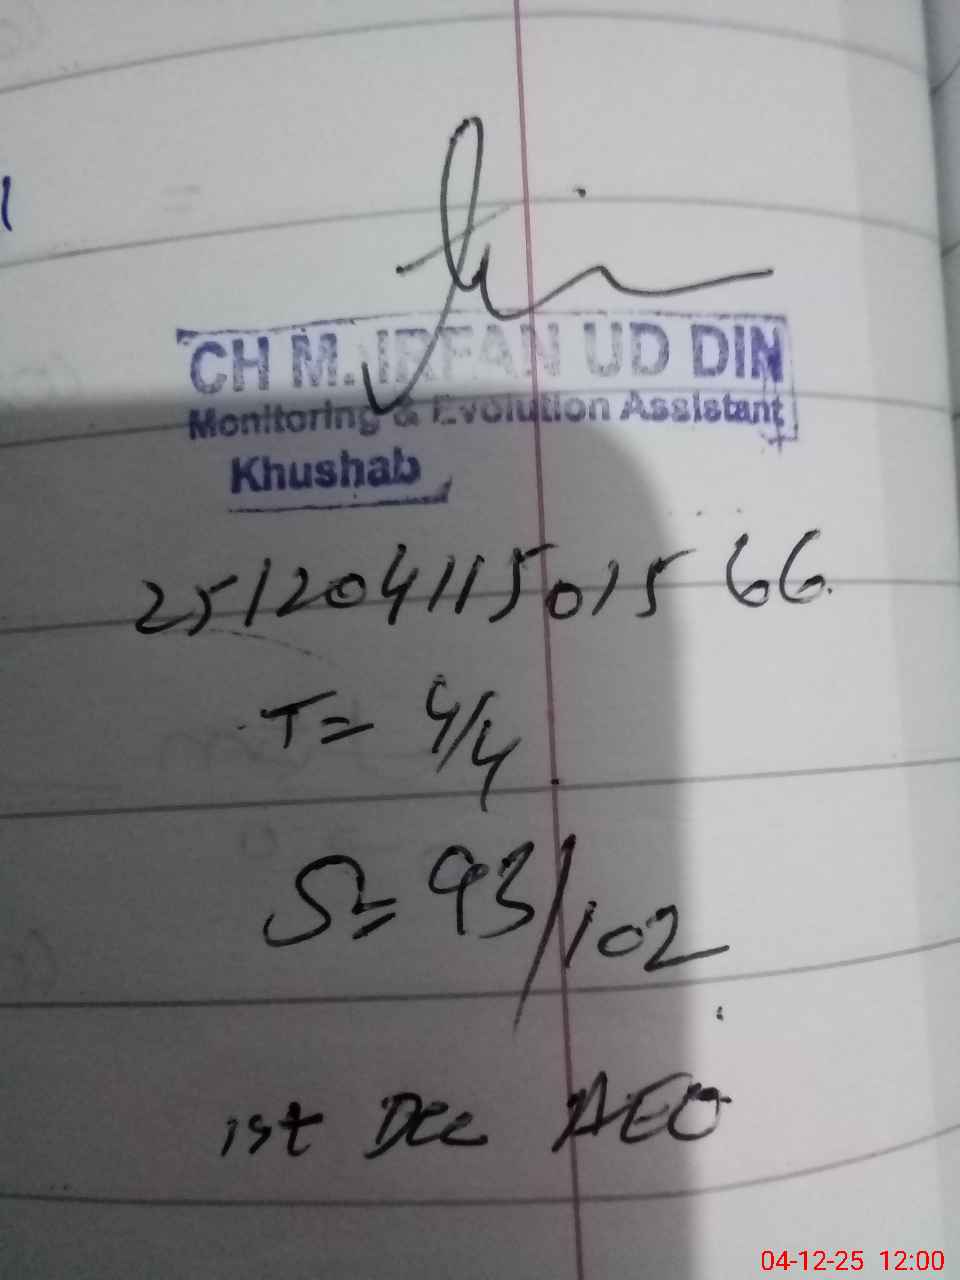 CH M. IRFAN UD DIN
Monitoring & Evolution Assistant
Khushab
25120411501566
T= 4/4
S= 93/102
1st Dec AEO
04-12-25 12:00